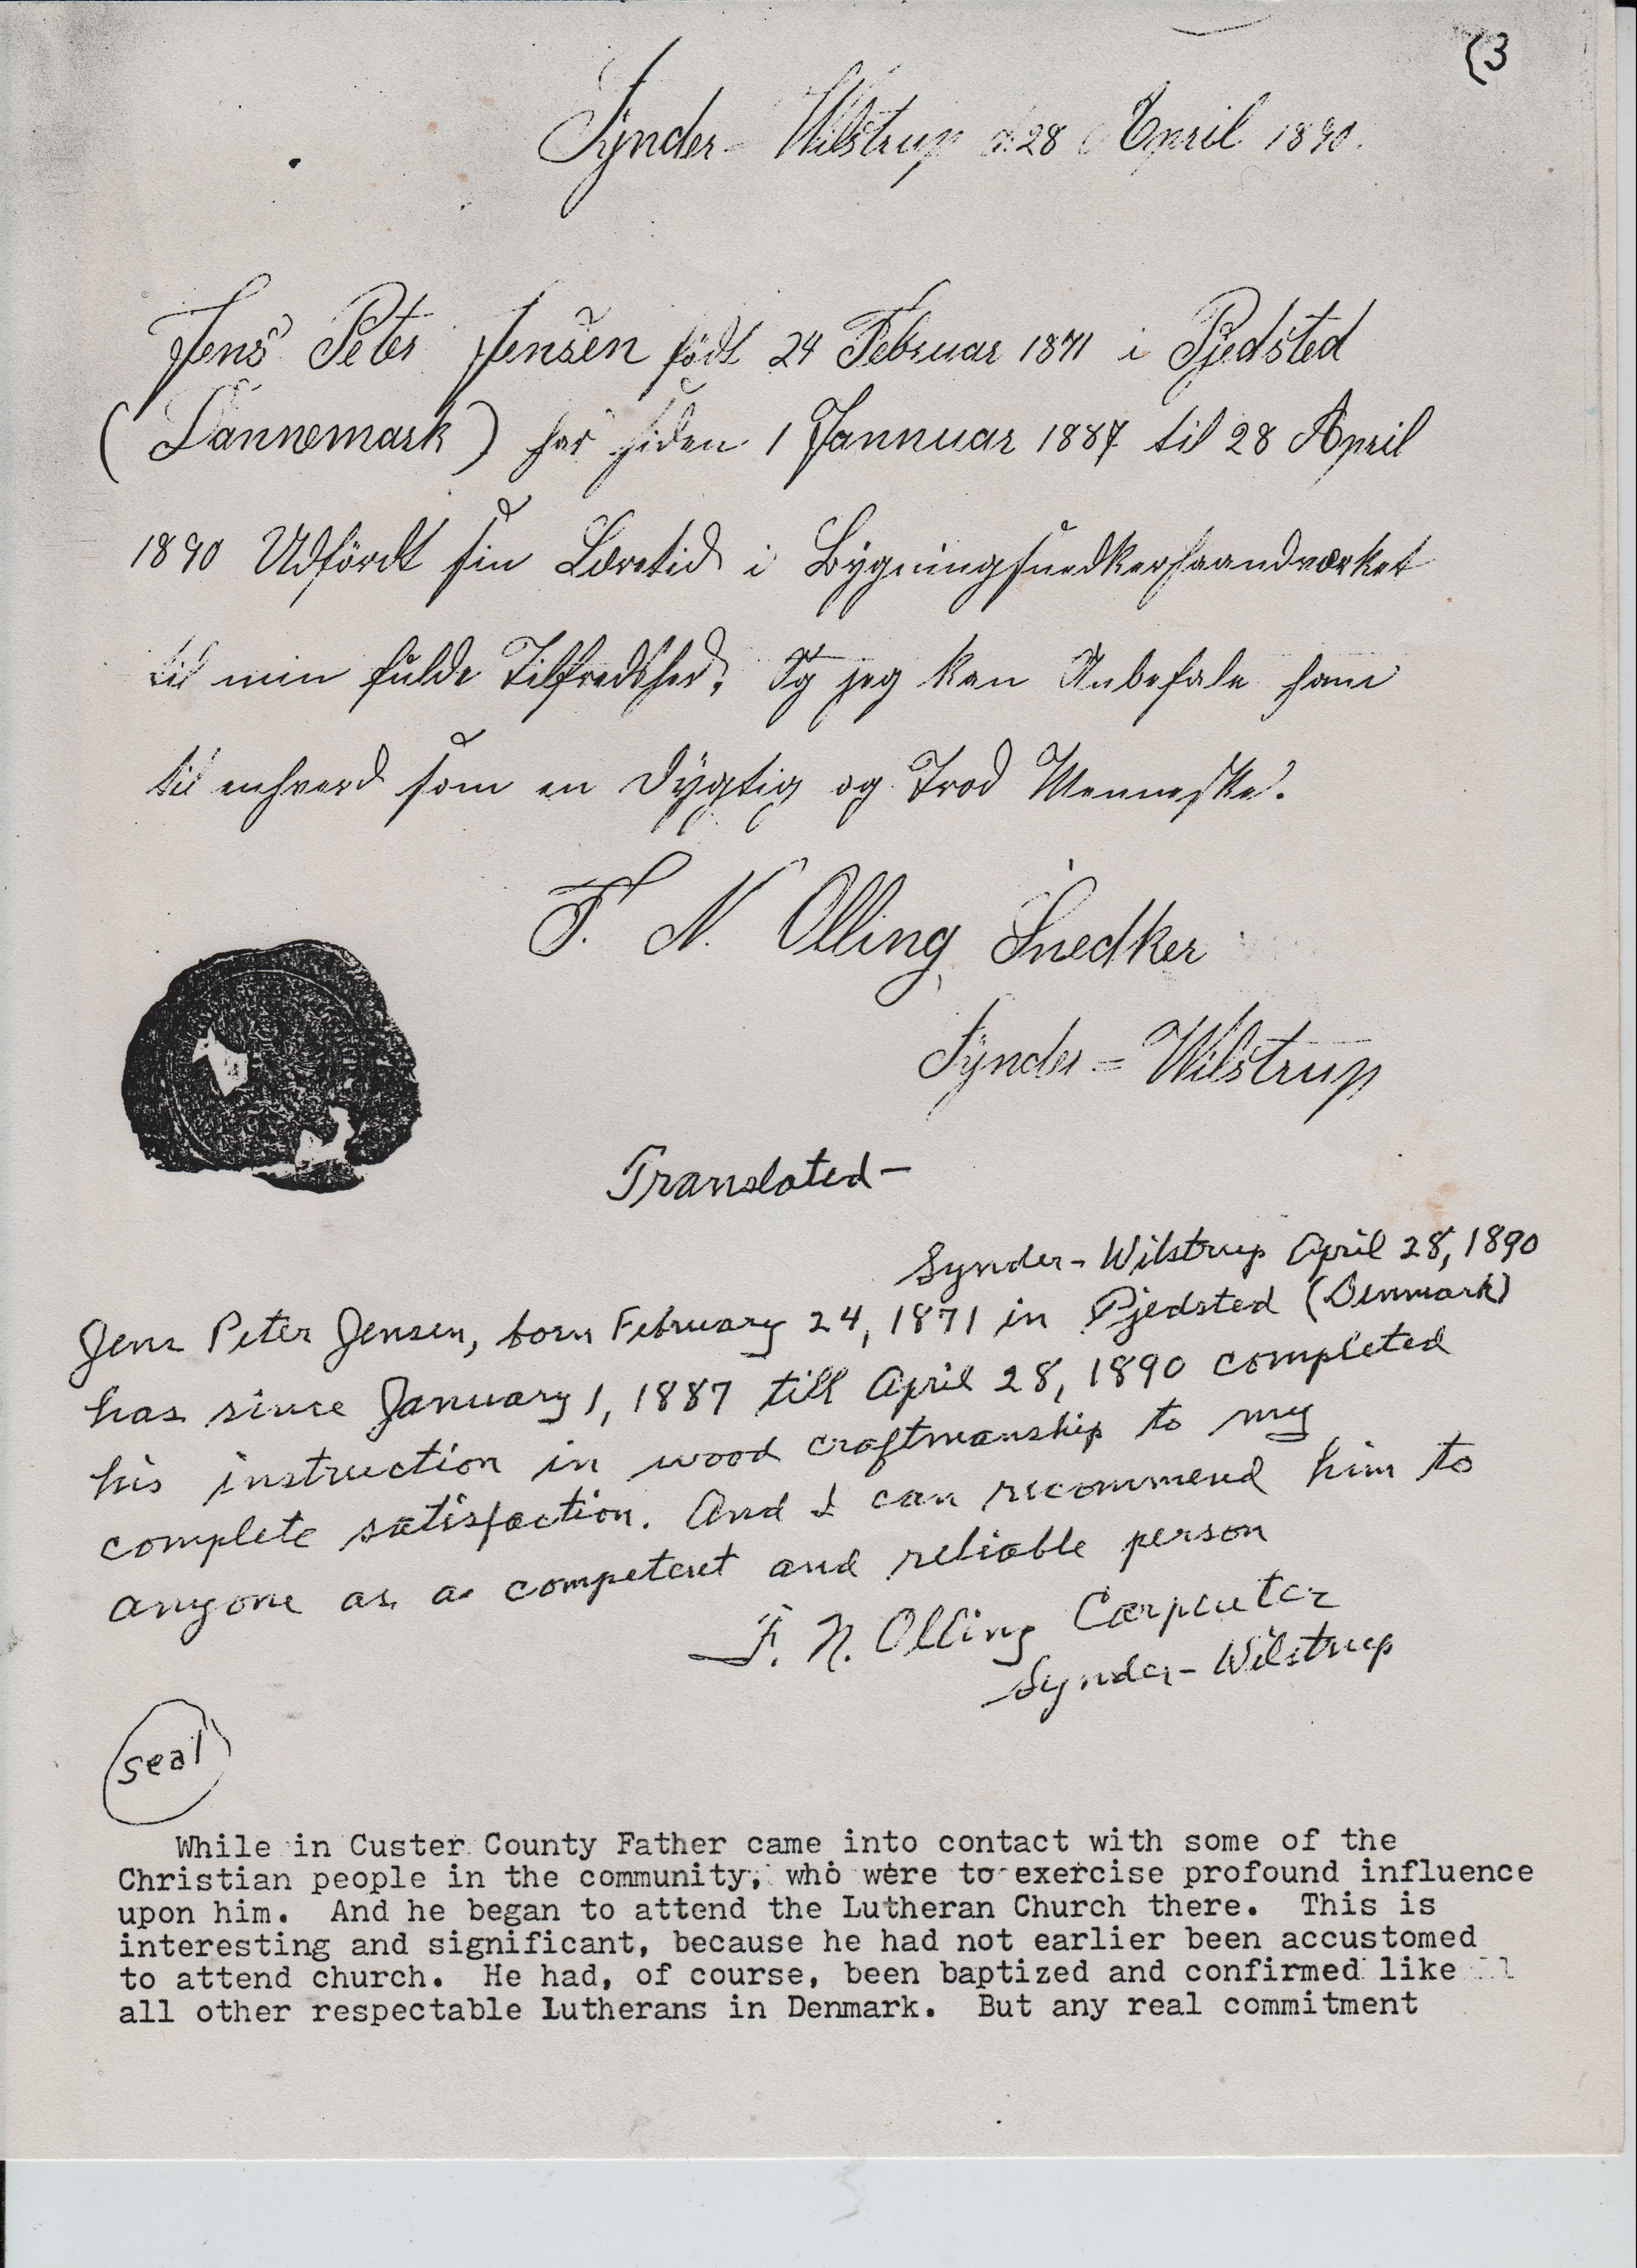 (3
Synder- Wilstrup d. 28 April 1890.
Jens Peter Jensen født 24 Februar 1871 i Pjedsted
(Dannemark) har siden 1 Jannuar 1887 til 28 April
1890 Udfördt sin Læretid i Bygningssnedkerhaandværket
til min fulde Tilfredshed; Og jeg kan Anbefale ham
til enhverd som en dygtig og Trod Menneske.
F. N. Olling Snedker
Synder = Wilstrup
Translated-
Synder- Wilstrup April 28, 1890
Jens Peter Jensen, born February 24, 1871 in Pjedsted (Denmark)
has since January 1, 1887 till April 28, 1890 completed
his instruction in wood craftmanship to my
complete satisfaction. And I can recommend him to
anyone as a competent and reliable person
F. N. Olling Carpenter
Synder- Wilstrup
seal
While in Custer County Father came into contact with some of the
Christian people in the community, who were to exercise profound influence
upon him. And he began to attend the Lutheran Church there. This is
interesting and significant, because he had not earlier been accustomed
to attend church. He had, of course, been baptized and confirmed like
all other respectable Lutherans in Denmark. But any real commitment